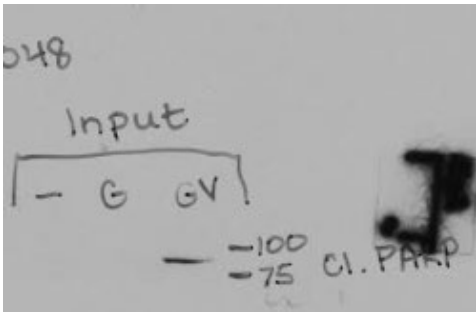 048
Input
- G GV
-100
-75 Cl. PARP